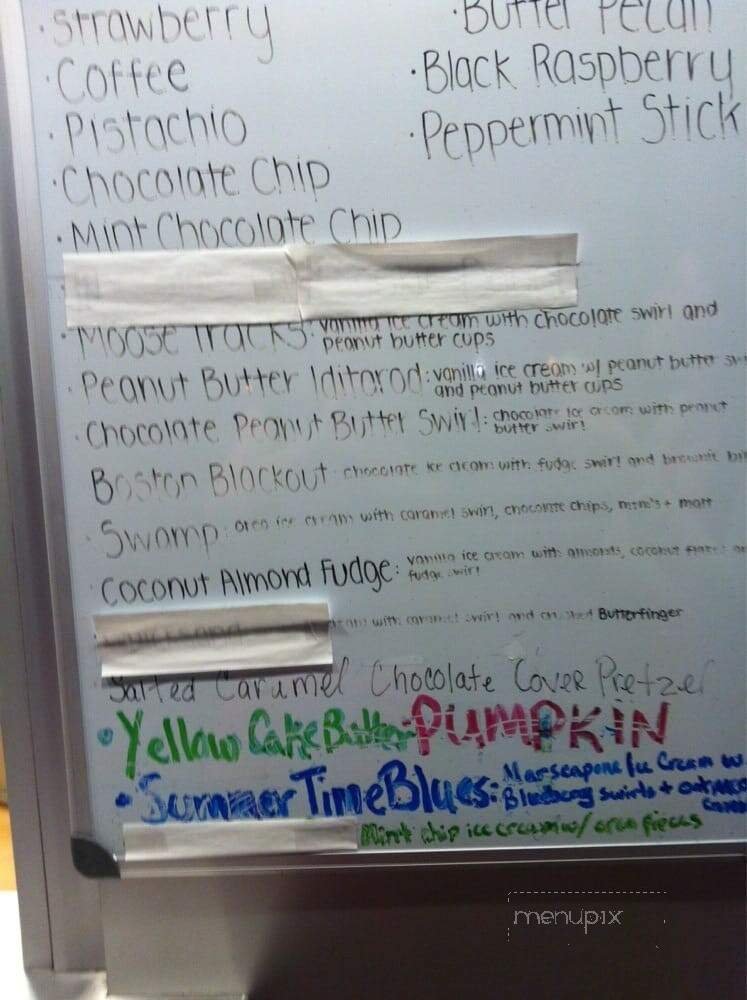 ·Strawberry
·Butter Pecan
·Coffee
·Black Raspberry
·Pistachio
·Peppermint Stick
·Chocolate Chip
·Mint Chocolate Chip
·Moose Tracks: vanilla ice cream with chocolate swirl and
peanut butter cups
·Peanut Butter Iditarod: vanilla ice cream w/ peanut butter
and peanut butter cups
·Chocolate Peanut Butter Swirl: chocolate ice cream with peanut
butter swirl
Boston Blackout: chocolate ice cream with fudge swirl and brownie
·Swamp: oreo ice cream with caramel swirl, chocolate chips, m+m's + malt
·Coconut Almond Fudge: vanilla ice cream with almonds, coconut flakes
fudge swirl
cream with caramel swirl and crushed Butterfinger
Salted Caramel Chocolate Cover Pretzel
·Yellow Cake Batter ·PUMPKIN
·SummerTimeBlues: Marscapone Ice Cream w
Blueberry swirls +
Mint chip ice cream w/ oreo pieces
menupix